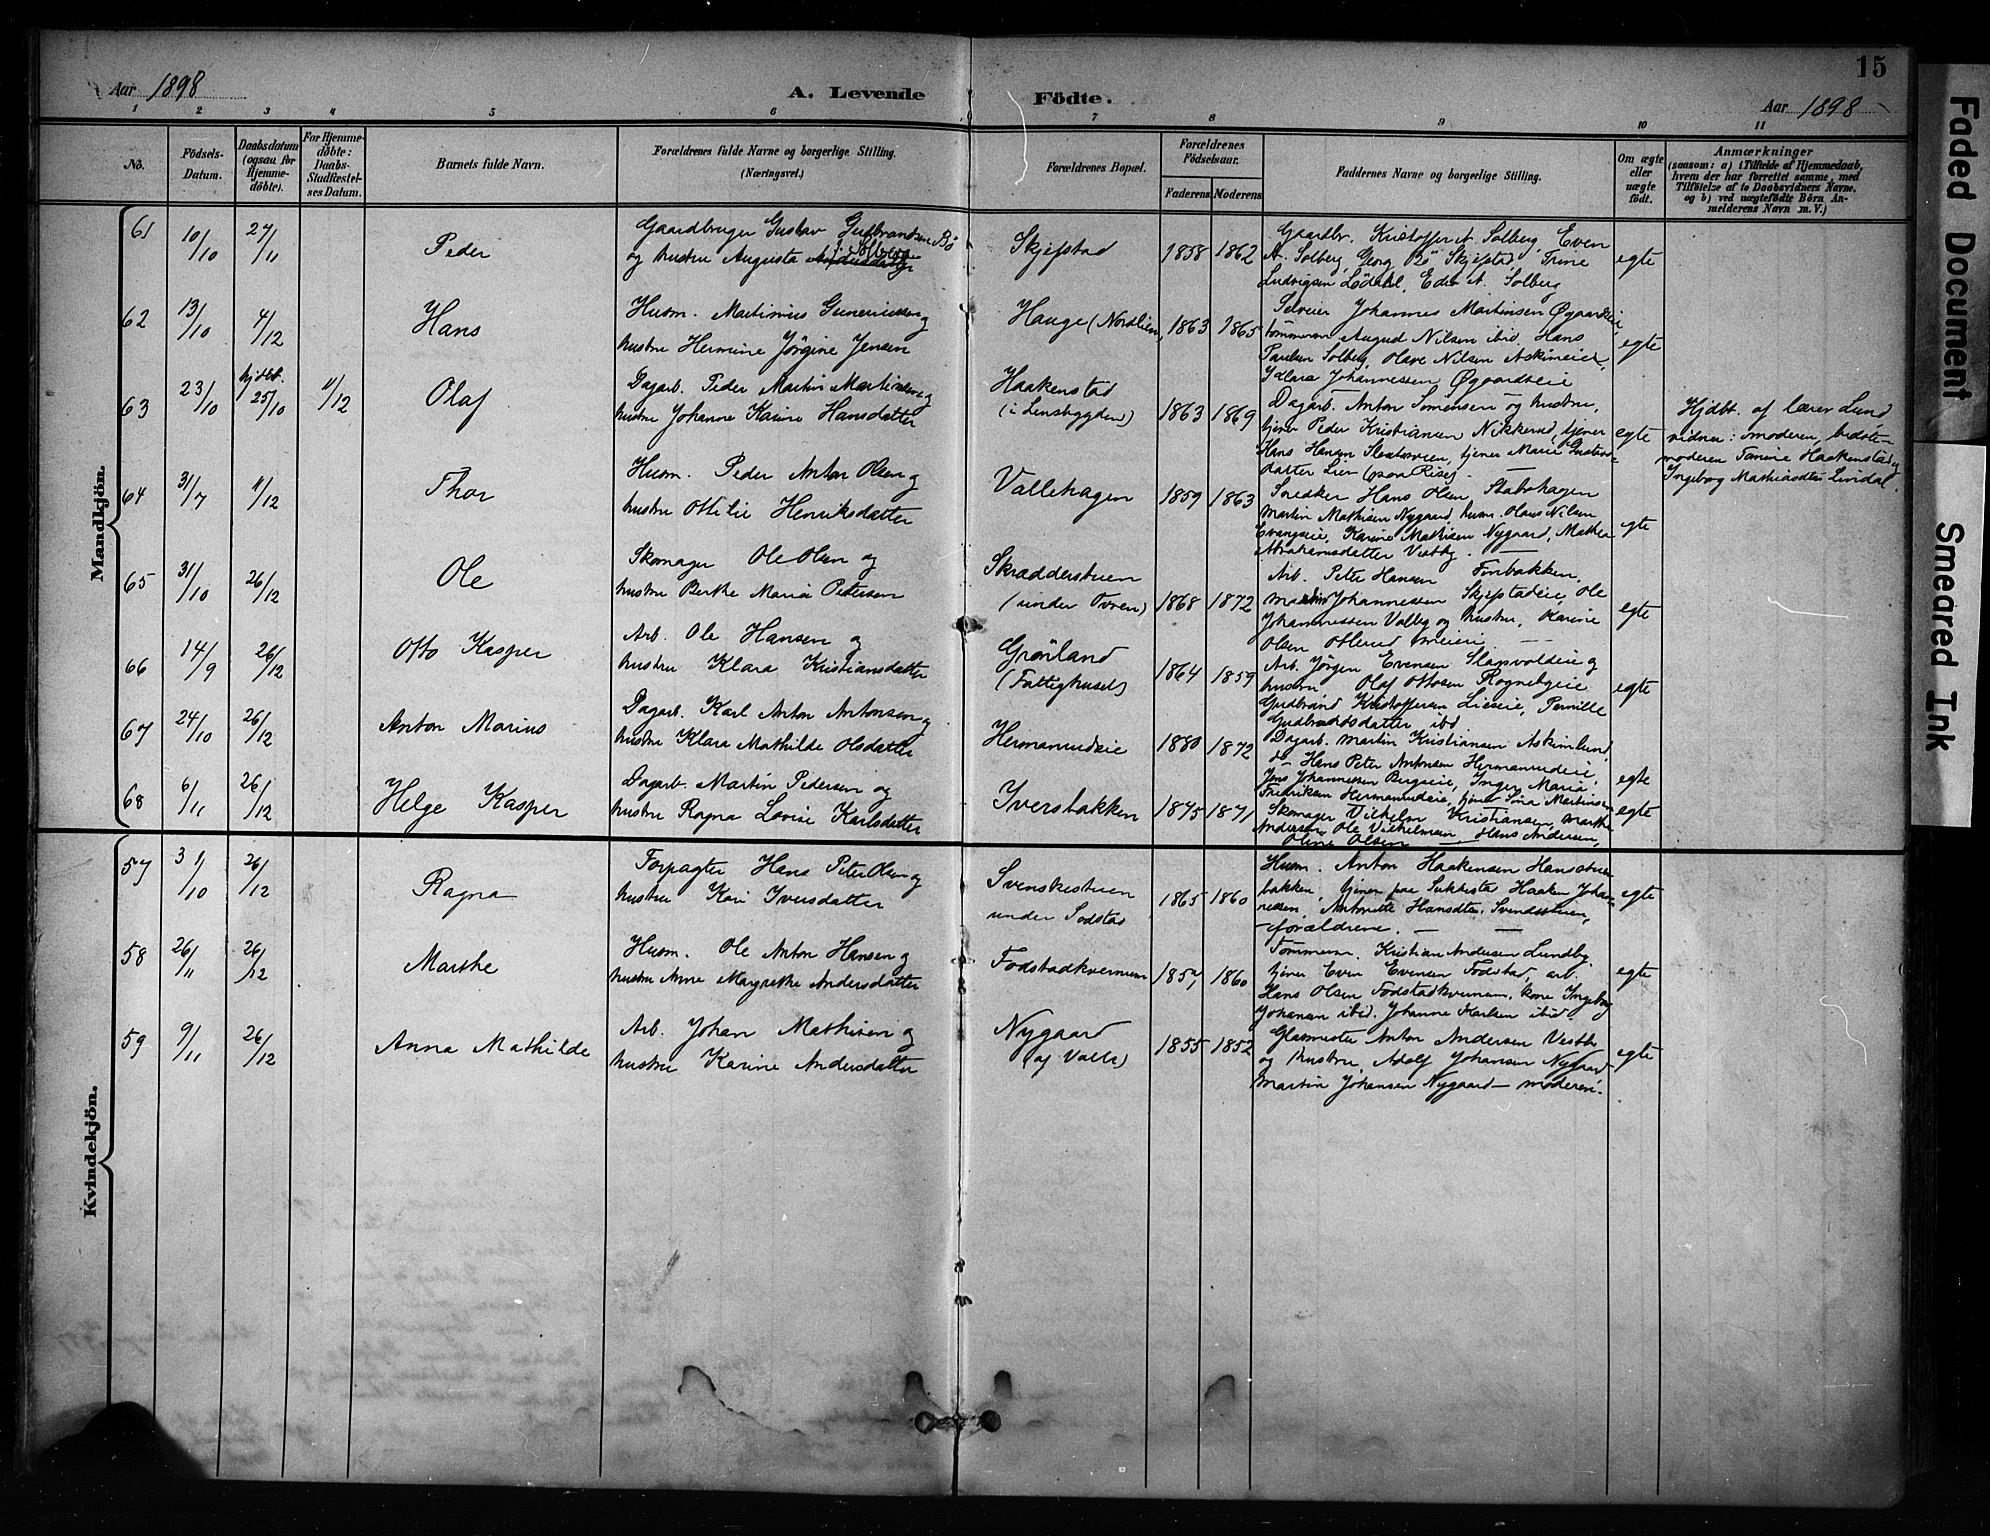 15
Aar 1898
A. Levende Födte.
Aar 1898
1 2 3 4 5 6 7 8 9 10 11
No.
Födsels-Datum.
Daabsdatum (ogsaa for Hjemmedöbte).
For Hjemmedöbte: Daabs-Stadfæstelses Datum.
Barnets fulde Navn.
Forældrenes fulde Navne og borgerlige Stilling.
(Næringsvei.)
Forældrenes Bopæl.
Forældrenes Födselsaar.
Faderens Moderens
Faddernes Navne og borgerlige Stilling.
Om ægte eller uægte födt.
Anmærkninger
(saasom: a) i Tilfælde af Hjemmedaab,
hvem der har forrettet samme, med
Tilföielse af to Daabsvidners Navne,
og b) ved uægtefödte Börn An-
melderens Navn m. V.)
Mandkjön.
61 10/10 27/11 Peder
Gaardbruger Gustav Gulbrandsen Bö
og hustru Augusta Solberg
Skjefstad 1858 1862
Gaardbr. Kristoffer A. Solberg, Even
A. Solberg, Georg Bö Skjefstad, Trine
Ludvigsen Lödahl, Eder A. Solberg
egte
62 13/10 4/12 Hans
Husm. Martinius Gunerius og
hustru Hermine Jörgine Jensen
Hauge (Nordlien) 1863 1865
Selveier Johannes Martinsen Øgaardeie,
tömmerm. August Nilsen ibid, Hans
Paulsen Solberg, Olave Nilsen Askimeiet,
Klara Johannessen Øgaardseie
egte
63 23/10 hjdbt. 25/10 11/12 Olaf
Dagarb. Peder Martin Martinsen og
hustru Johanne Karine Hansdatter
Haakenstad
(i Lensbygden) 1863 1869
Dagarb. Anton Simensen og hustru,
tjener Peder Kristiansen Nikkerud, tjener
Hans Hansen, tjener Marie Gustavs-
datter Lier (paa Rise)
egte
Hjdbt. af lærer Lund
vidner: moderen, bedste-
moderen Tomine Haakenstad og
Ingeborg Mathiasdtr Lindal.
64 31/7 11/12 Thor
Husm. Peder Anton Olsen og
hustru Ottilie Henriksdatter
Vallehagen 1859 1863
Snedker Hans Olsen Stabohagen
Martin Mathisen Nygaard, husm. Olaus Nilsen
Evangseie, Karine Mathisen Nygaard, Mathea
Abrahamsdatter Vestby.
egte
65 31/10 26/12 Ole
Skomager Ole Olsen og
hustru Berthe Maria Petersen
Skrædderstuen
(under Ovren) 1868 1872
Arb. Peter Hansen Finbakken,
Johannessen Skjefstadeie, Ole
Johannessen Valby og hustru, Karine
Olsen
egte
66 14/9 26/12 Otto Kasper
Arb. Ole Hansen og
hustru Klara Kristiansdatter
Grönland
(Fattighuset) 1864 1859
Arb. Jörgen Evensen Slapvoldeie og
hustru Olaf Ottosen Rognebyeie
Gudbrand Kristoffersen Lieseie, Pernille
Gudbrandsdatter ibd
egte
67 24/10 26/12 Anton Marius
Dagarb. Karl Anton Antonsen og
hustru Klara Mathilde Olsdatter
Hermanrudeie 1880 1872
Dagarb. Martin Kristiansen Askimlund,
do Hans Peter Antonsen Hermanrudeie,
Jens Johannessen Bergseie, Inger Maria
Fredriksen Hermanrudeie, tjener Sina Martinsen
egte
68 6/11 26/12 Helge Kasper
Dagarb. Martin Pedersen og
hustru Ragna Lovise Karlsdatter
Iversbakken 1875 1871
Skomager Vilhelm Kristiansen, Marthe
Andersen, Ole Vilhelmsen, Hans Andersen,
Oline Olsen
egte
Kvindekjön.
57 31/10 26/12 Ragna
Forpagter Hans Peter Olsen og
hustru Kari Iversdatter
Svenskestuen
under Sodstad 1865 1860
Husm. Anton Haakensen Hanstue-
bakken, tjener paa Sukkestad Haaken Johan-
nessen, Antonette Hansdtr. Svendsstuen,
forældrene.
egte
58 26/11 26/12 Marthe
Husm. Ole Anton Hansen og
hustru Anne Margrethe Andersdatter
Fodstadkvernen 1857 1860
Tömmerm. Kristian Andersen Lundby,
tjener Even Evensen Fodstad, arb.
Hans Olsen Fodstadkvernen, kone Ingeborg
Johansen ibid. Johanne Karlsen ibid.
egte
59 9/11 26/12 Anna Mathilde
Arb. Johan Mathisen og
hustru Karine Andersdatter
Nygaard
(af Valle) 1855 1852
Glasmester Anton Andersen Vestbk
og hustru, Adolf Johansen Nygaard
Martin Johansen Nygaard — moderen.
egte
Faded Document
Smeared Ink